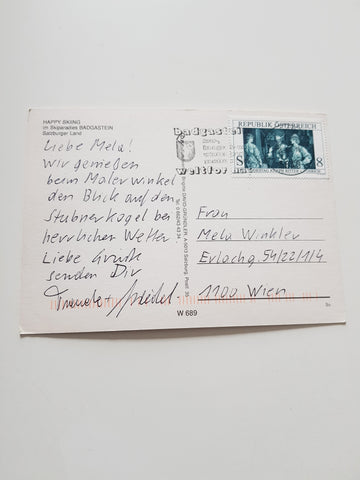 HAPPY SKIING
im Skiparadies BADGASTEIN
Salzburger Land
Liebe Mela!
Wir genießen
beim Malerwinkel
den Blick auf den
Stubnerkogel bei
herrlichem Wetter
Liebe Grüße
senden Dir
badgastein
weltfor
REPUBLIK ÖSTERREICH
S 8
8
Frau
Mela Winkler
Erlachg. 54/22/1/4
1100 Wien
W 689